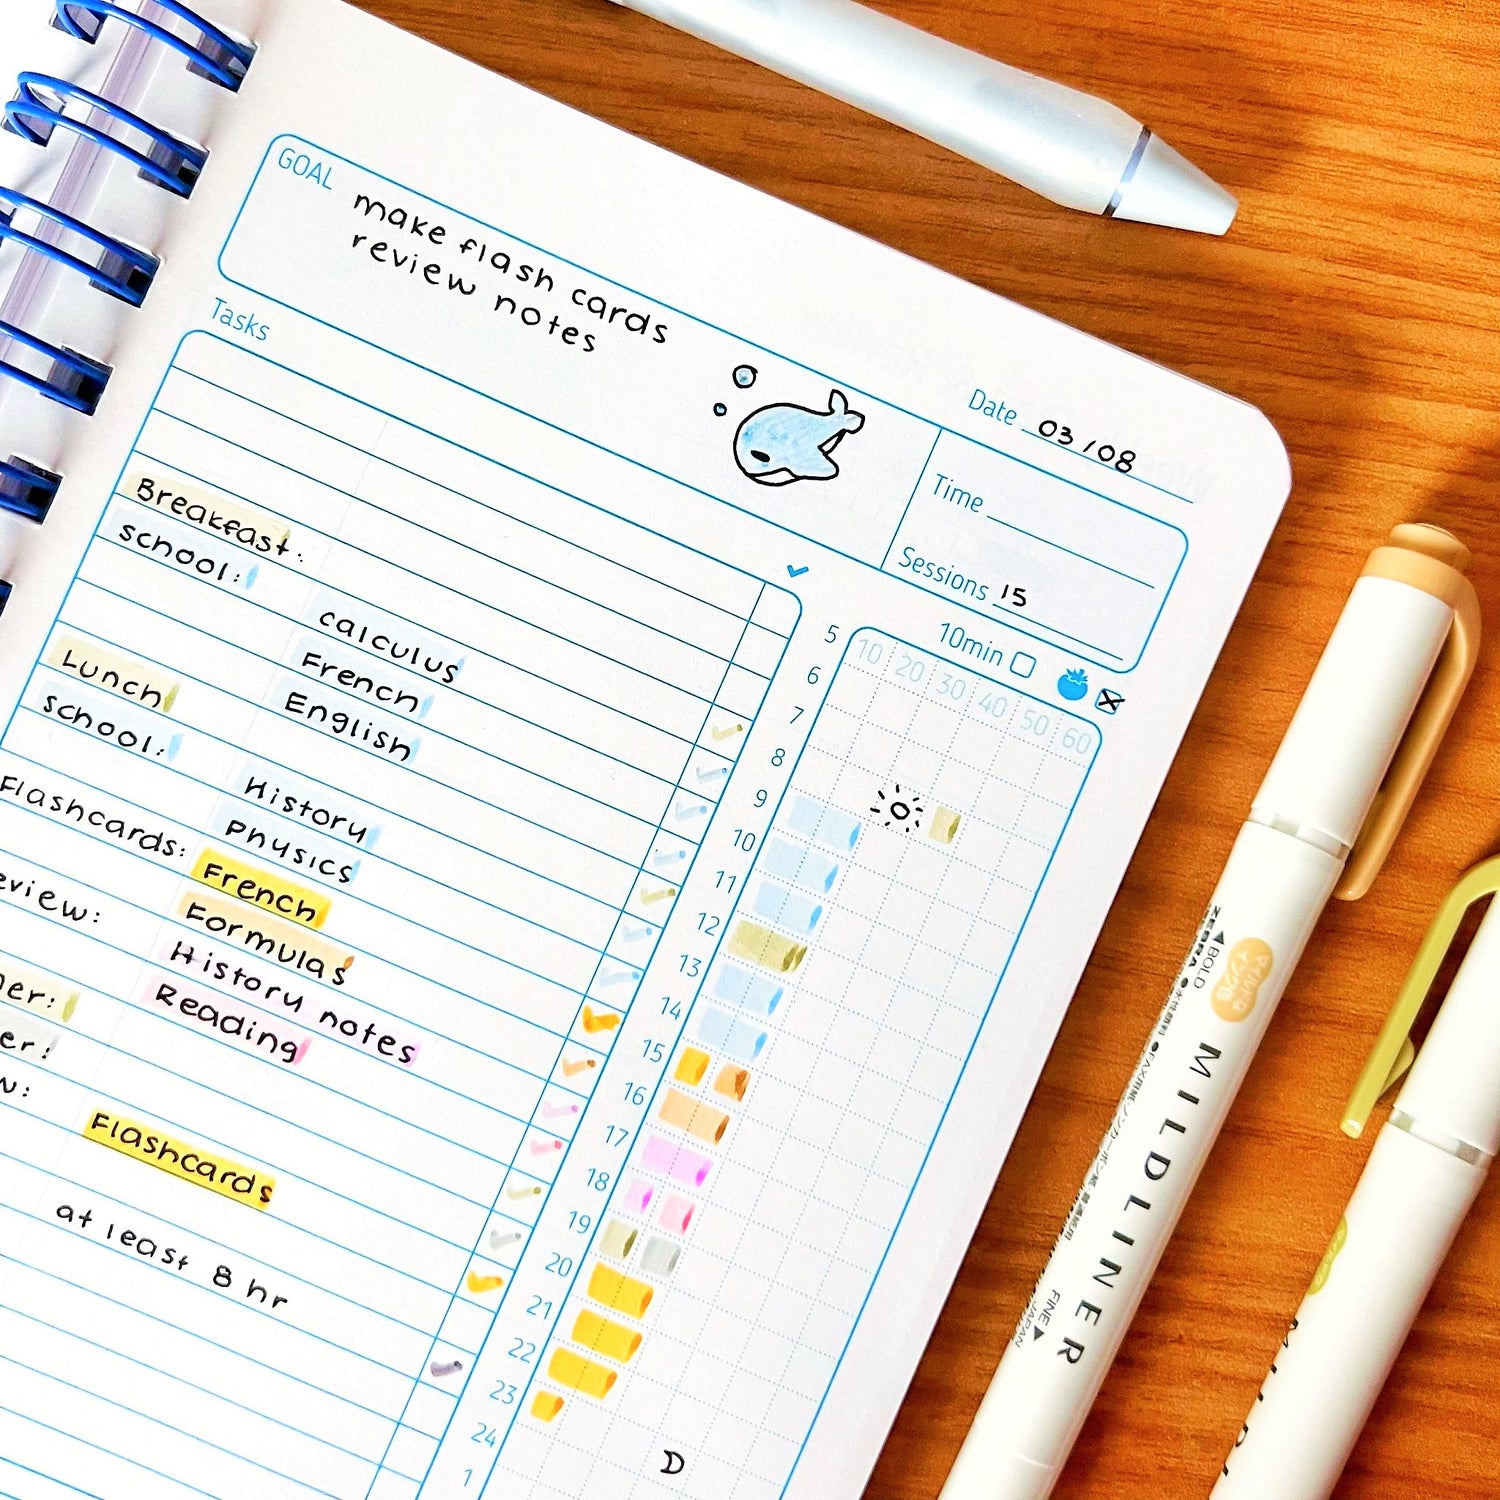 GOAL make flash cards
review notes
Date 03/08
Time
Sessions 15
Tasks
10min
10 20 30 40 50 60
Breakfast:
school:
calculus
French
English
Lunch
school:
History
Physics
Flashcards: French
eview: Formulas
History notes
Reading
ner:
er:
w:
Flashcards
at least 8 hr
5
6
7
8
9
10
11
12
13
14
15
16
17
18
19
20
21
22
23
24
1
D
ZEBRA
BOLD
MILDLINER
FINE
JAPAN